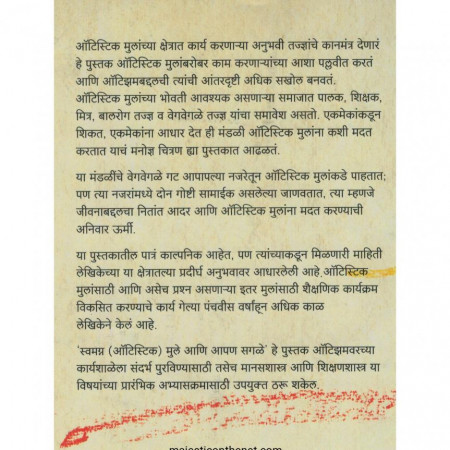 ऑटिस्टिक मुलांच्या क्षेत्रात कार्य करणाऱ्या अनुभवी तज्ज्ञांचे कानमंत्र देणारं
हे पुस्तक ऑटिस्टिक मुलांबरोबर काम करणाऱ्यांच्या आशा पल्लवीत करतं
आणि ऑटिझमबद्दलची त्यांची आंतरदृष्टी अधिक सखोल बनवतं.
ऑटिस्टिक मुलांच्या भोवती आवश्यक असणाऱ्या समाजात पालक, शिक्षक,
मित्र, बालरोग तज्ज्ञ व वेगवेगळे तज्ज्ञ यांचा समावेश असतो. एकमेकांकडून
शिकत, एकमेकांना आधार देत ही मंडळी ऑटिस्टिक मुलांना कशी मदत
करतात याचं मनोज्ञ चित्रण ह्या पुस्तकात आढळतं.
या मंडळींचे वेगवेगळे गट आपापल्या नजरेतून ऑटिस्टिक मुलांकडे पाहतात;
पण त्या नजरांमध्ये दोन गोष्टी सामाईक असलेल्या जाणवतात, त्या म्हणजे
जीवनाबद्दलचा नितांत आदर आणि ऑटिस्टिक मुलांना मदत करण्याची
अनिवार ऊर्मी.
या पुस्तकातील पात्रं काल्पनिक आहेत, पण त्यांच्याकडून मिळणारी माहिती
लेखिकेच्या या क्षेत्रातल्या प्रदीर्घ अनुभवावर आधारलेली आहे.ऑटिस्टिक
मुलांसाठी आणि असेच प्रश्न असणाऱ्या इतर मुलांसाठी शैक्षणिक कार्यक्रम
विकसित करण्याचे कार्य गेल्या पंचवीस वर्षांहून अधिक काळ
लेखिकेने केलं आहे.
'स्वमग्न (ऑटिस्टिक) मुले आणि आपण सगळे' हे पुस्तक ऑटिझमवरच्या
कार्यशाळेला संदर्भ पुरविण्यासाठी तसेच मानसशास्त्र आणि शिक्षणशास्त्र या
विषयांच्या प्रारंभिक अभ्यासक्रमासाठी उपयुक्त ठरू शकेल.
majesticonthenet.com